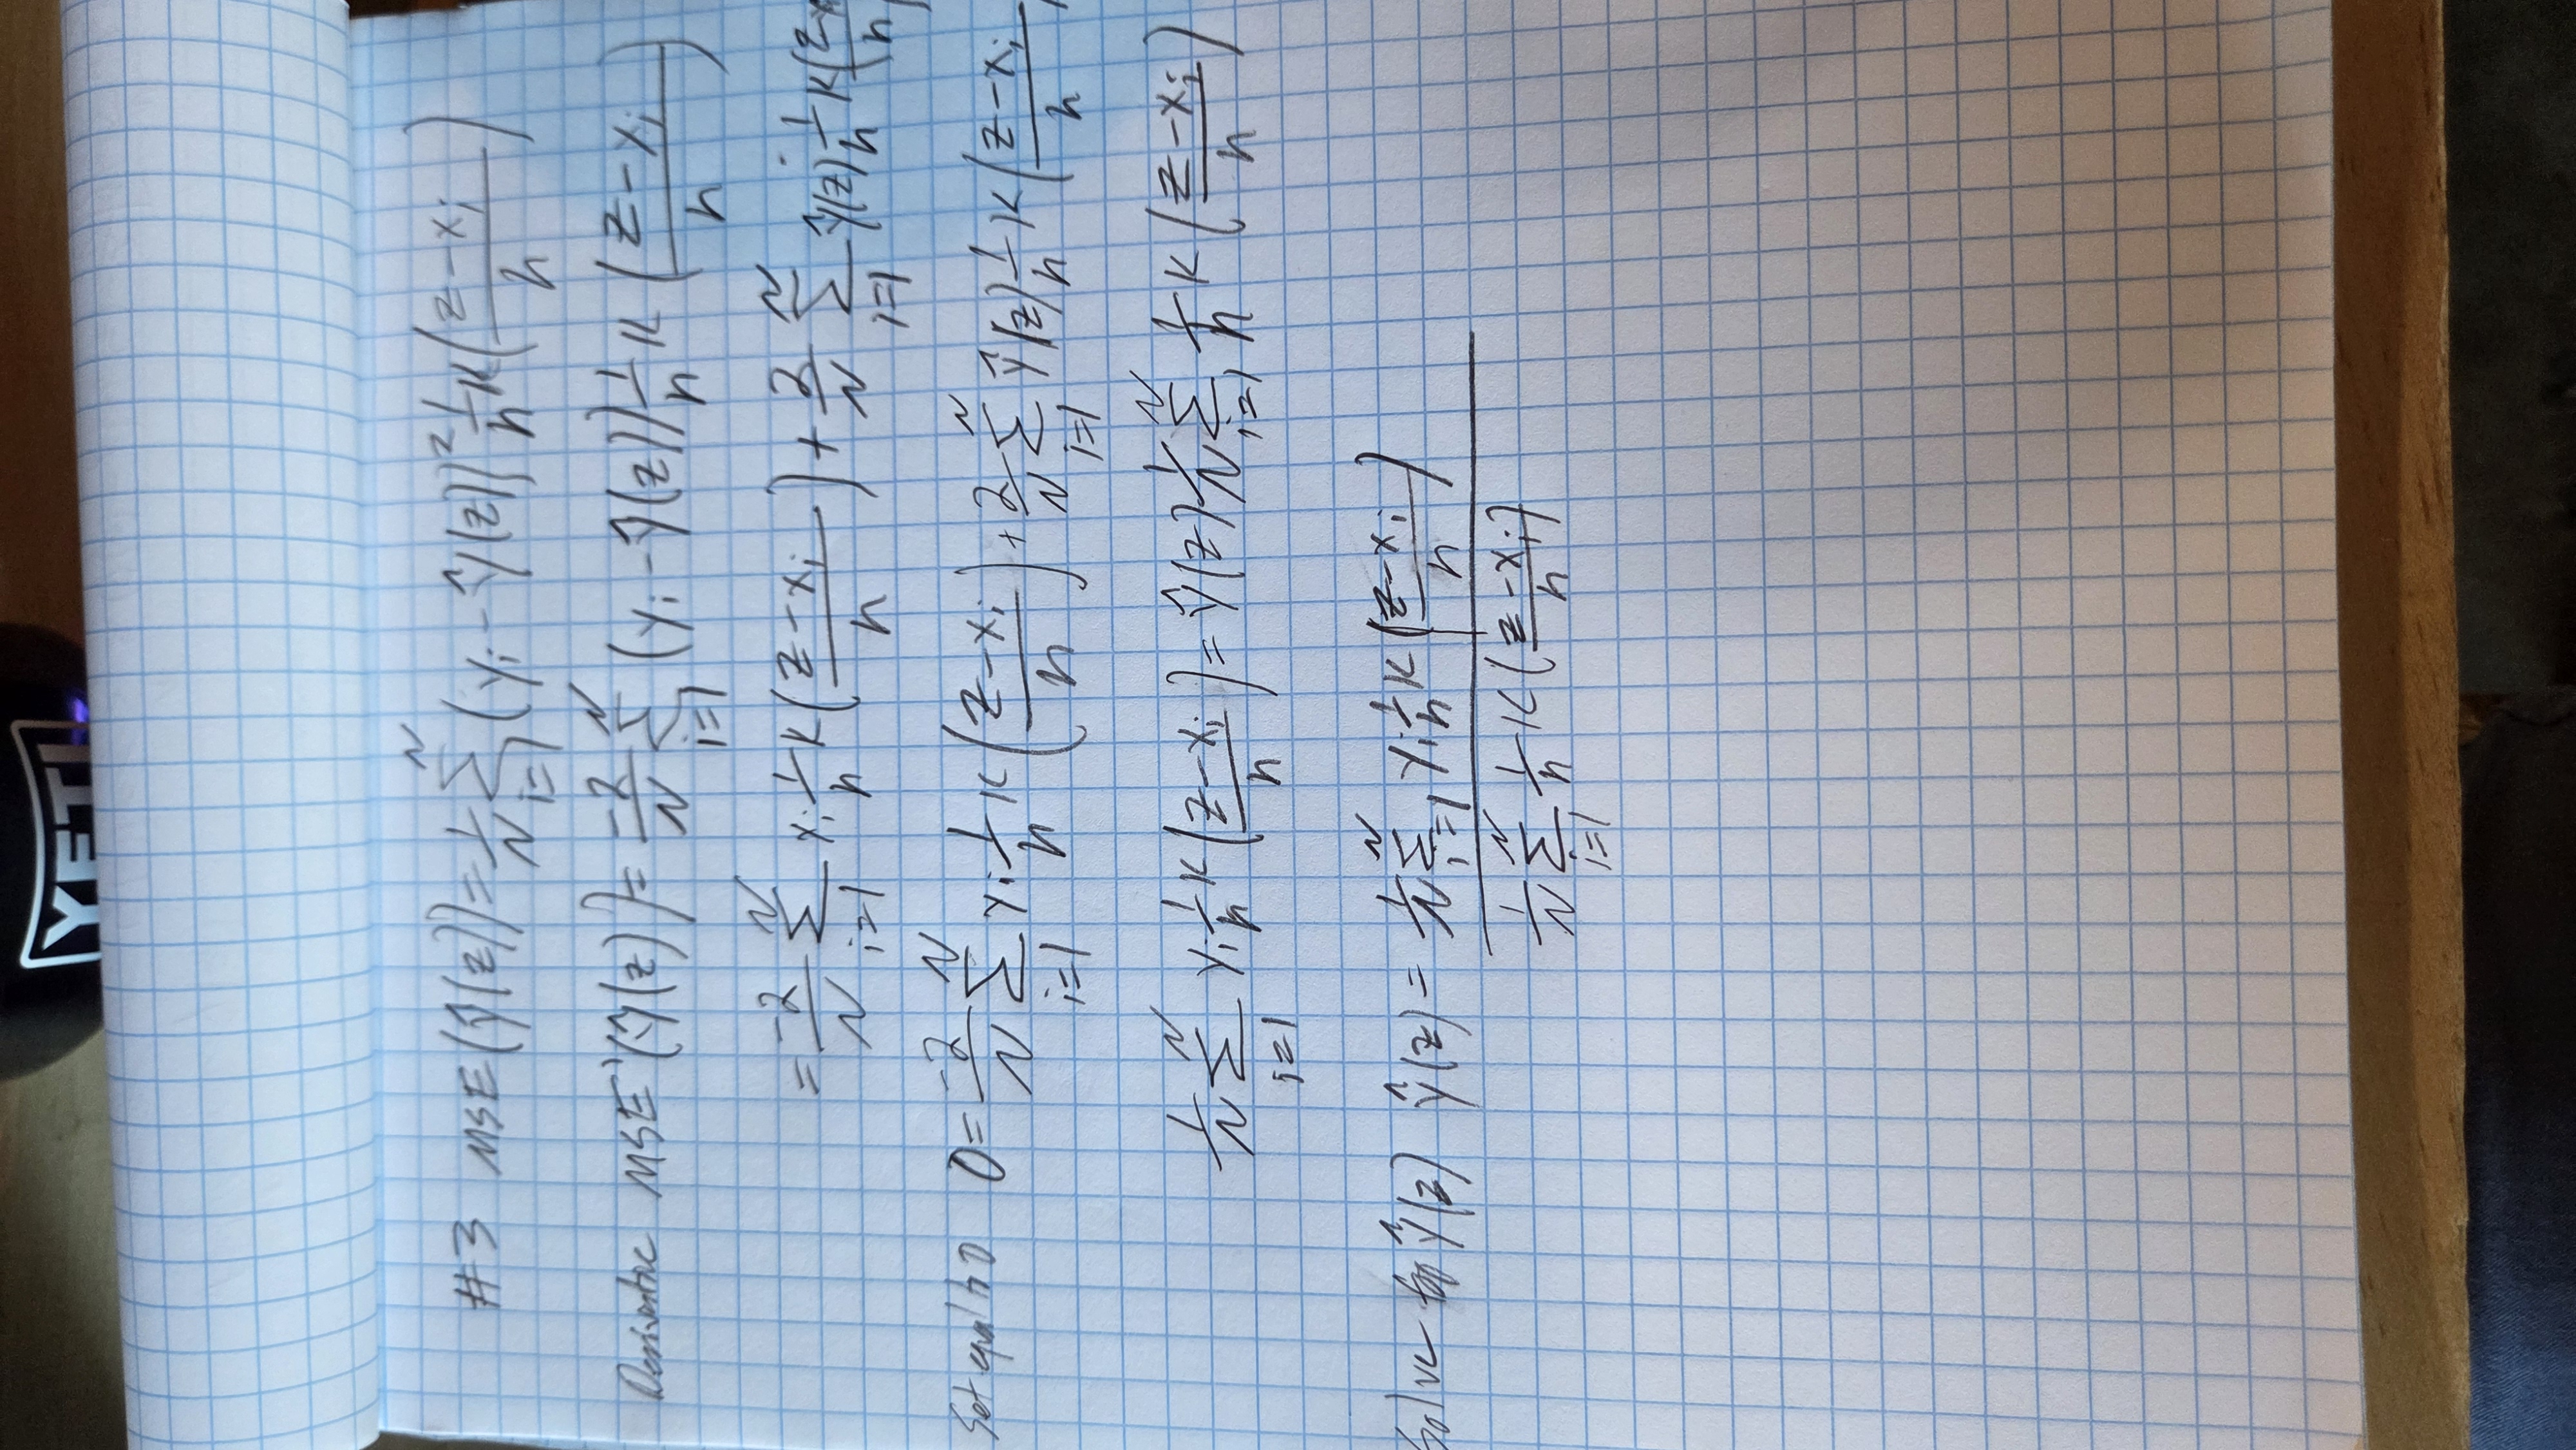 YETI
#3 MSE(ŷ(z)) = 1/N ∑_{i=1}^{N} (y_i - ŷ(z))² 1/h K((z-x_i)/h)
Derivative MSE'(ŷ(z)) = -2/N ∑_{i=1}^{N} (y_i - ŷ(z)) 1/h K((z-x_i)/h)
= -2/N ∑_{i=1}^{N} x_i 1/h K((z-x_i)/h) + 2/N ∑_{i=1}^{N} ŷ(z) 1/h K((z-x/h)
Set equal to 0 0 = -2/N ∑_{i=1}^{N} y_i 1/h K((z-x_i)/h) + 2/N ∑_{i=1}^{N} ŷ(z) 1/h K((z-x_i)/h
1/N ∑_{i=1}^{N} y_i 1/h K((z-x_i)/h) = ŷ(z) 1/N ∑_{i=1}^{N} 1/h K((z-x_i)/h)
Solve for ŷ(z) ŷ(z) = 1/N ∑_{i=1}^{N} y_i 1/h K((z-x_i)/h)
1/N ∑_{i=1}^{N} 1/h K((z-x_i)/h)